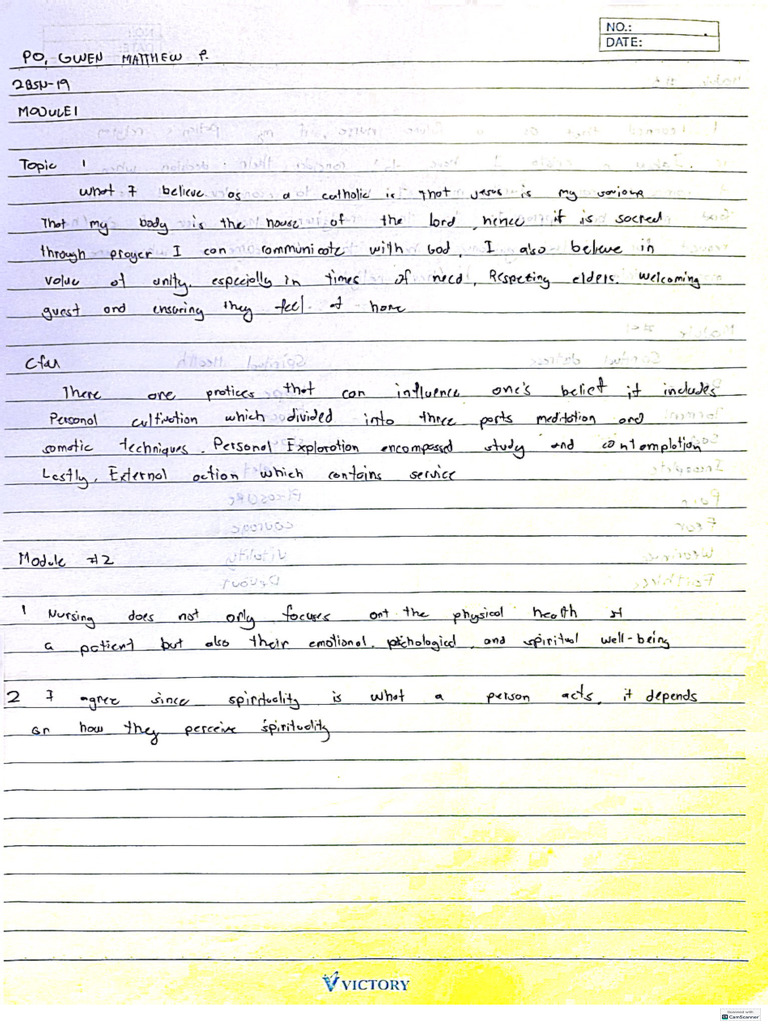 NO.:
DATE:
PO, GWEN MATTHEW P.
2BSN-19
MODULE 1
Topic 1
What I believe as a catholic is that jesus is my saviour
That my body is the house of the lord, hence it is sacred
through prayer I can communicate with God, I also believe in
value of unity, especially in times of need, Respecting elders. Welcoming
guest and ensuring they feel at home
Cfu
There are pratices that can influence one's belief it includes
Personal cultivation which divided into three parts meditation and
somatic techniques. Personal Exploration encompassed study and contemplation
Lastly, External action which contains service
Module #2
1 Nursing does not only focuses ont the physical health of
a patient but also their emotional, pschological, and spiritual well-being
2 I agree since spirituality is what a person acts, it depends
on how they perceive spirituality
VICTORY
Scanned with
CamScanner